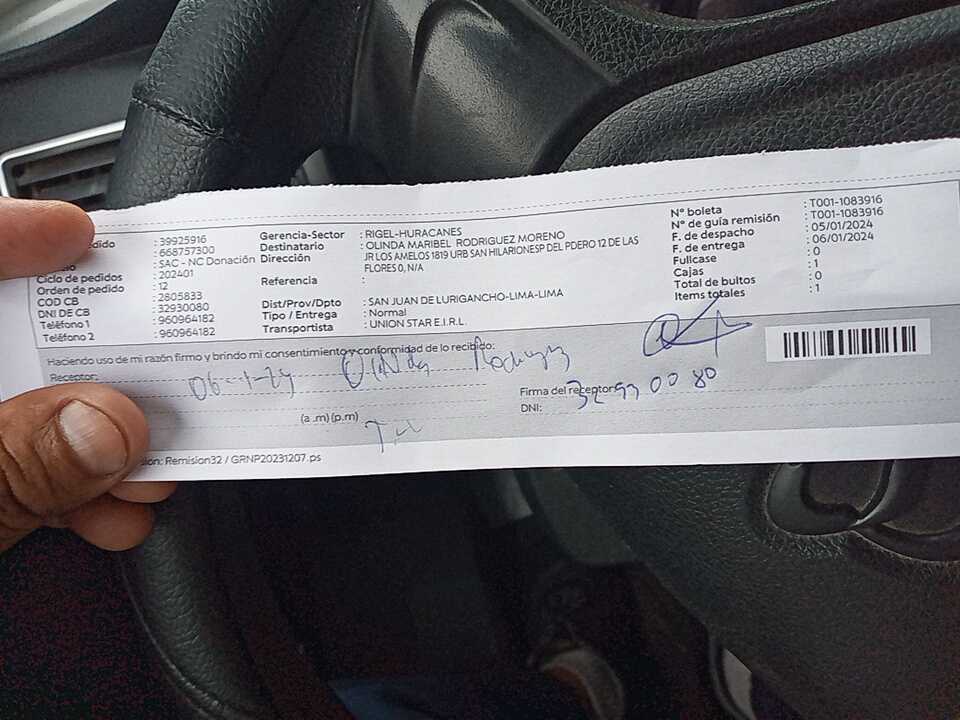 dido : 39925916
: 668757300
: SAC - NC Donación
Ciclo de pedidos : 202401
Orden de pedido : 12
COD CB : 2805833
DNI DE CB : 32930080
Teléfono 1 : 960964182
Teléfono 2 : 960964182
Gerencia-Sector : RIGEL-HURACANES
Destinatario : OLINDA MARIBEL RODRIGUEZ MORENO
Dirección : JR LOS AMELOS 1819 URB SAN HILARIONESP DEL PDERO 12 DE LAS
FLORES 0, N/A
Referencia :
Dist/Prov/Dpto : SAN JUAN DE LURIGANCHO-LIMA-LIMA
Tipo / Entrega : Normal
Transportista : UNION STAR E.I.R.L.
N° boleta : T001-1083916
N° de guía remisión : T001-1083916
F. de despacho : 05/01/2024
F. de entrega : 06/01/2024
Fullcase : 0
Cajas : 1
Total de bultos : 0
Items totales : 1
Haciendo uso de mi razón firmo y brindo mi consentimiento y conformidad de lo recibido:
Receptor: 06-1-24 Olinda Rodriguez
Firma del receptor:
DNI: 32930080
(a .m) (p.m)
sion: Remision32 / GRNP20231207.ps